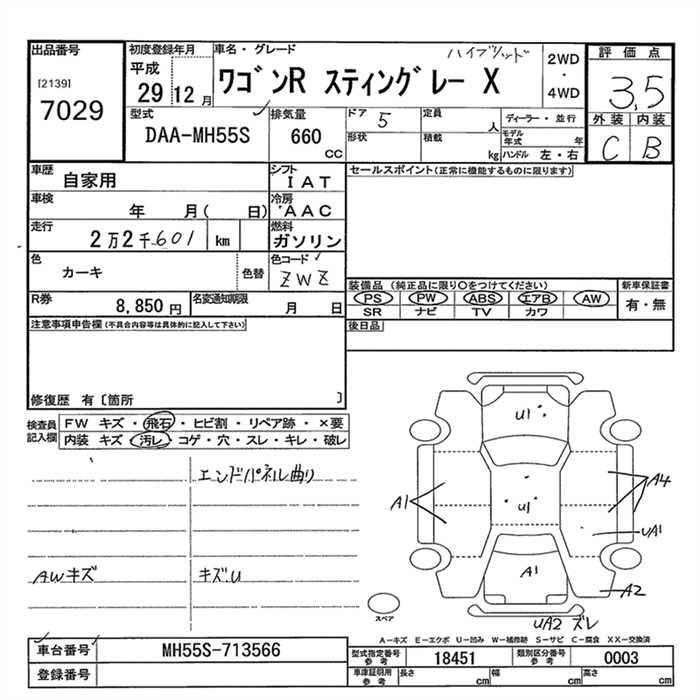 出品番号
[2139]
7029
初度登録年月
平成
29 12 月
車名・グレード
ハイブリッド
ワゴンR スティングレー X
2WD
・
4WD
評価点
3,5
外装 内装
C B
型式
DAA-MH55S
排気量
660
CC
ドア 5
形状
定員
人
積載
kg
ディーラー・並行
モデル
年式 年
ハンドル 左・右
車歴
自家用
シフト
IAT
車検
年 月( 日)
冷房
AAC
走行
2万2千601 km
燃料
ガソリン
色
カーキ
色替
色コード
ZWZ
R券
8,850 円
名変通知期限
月 日
セールスポイント(正常に機能するものに限ります)
装備品 (純正品に限り○をつけてください)
PS PW ABS エアB AW
SR ナビ TV カワ
新車保証書
有・無
後日品
注意事項申告欄(不具合内容等は具体的に記入して下さい)
修復歴 有〔箇所 〕
検査員
記入欄
FW キズ・飛石・ヒビ割・リペア跡・×要
内装 キズ・汚レ・コゲ・穴・スレ・キレ・破レ
エンドパネル曲り
AWキズ
キズ.U
U1
U1
A1
A1
A4
UA1
A2
UA2 ズレ
スペア
A-キズ E-エクボ U-凹み W-補修跡 S-サビ C-腐食 XX-交換済
車台番号
MH55S-713566
登録番号
型式指定番号
参考
18451
類別区分番号
参考
0003
車庫証明用
参考
長さ cm
幅 cm
高さ cm